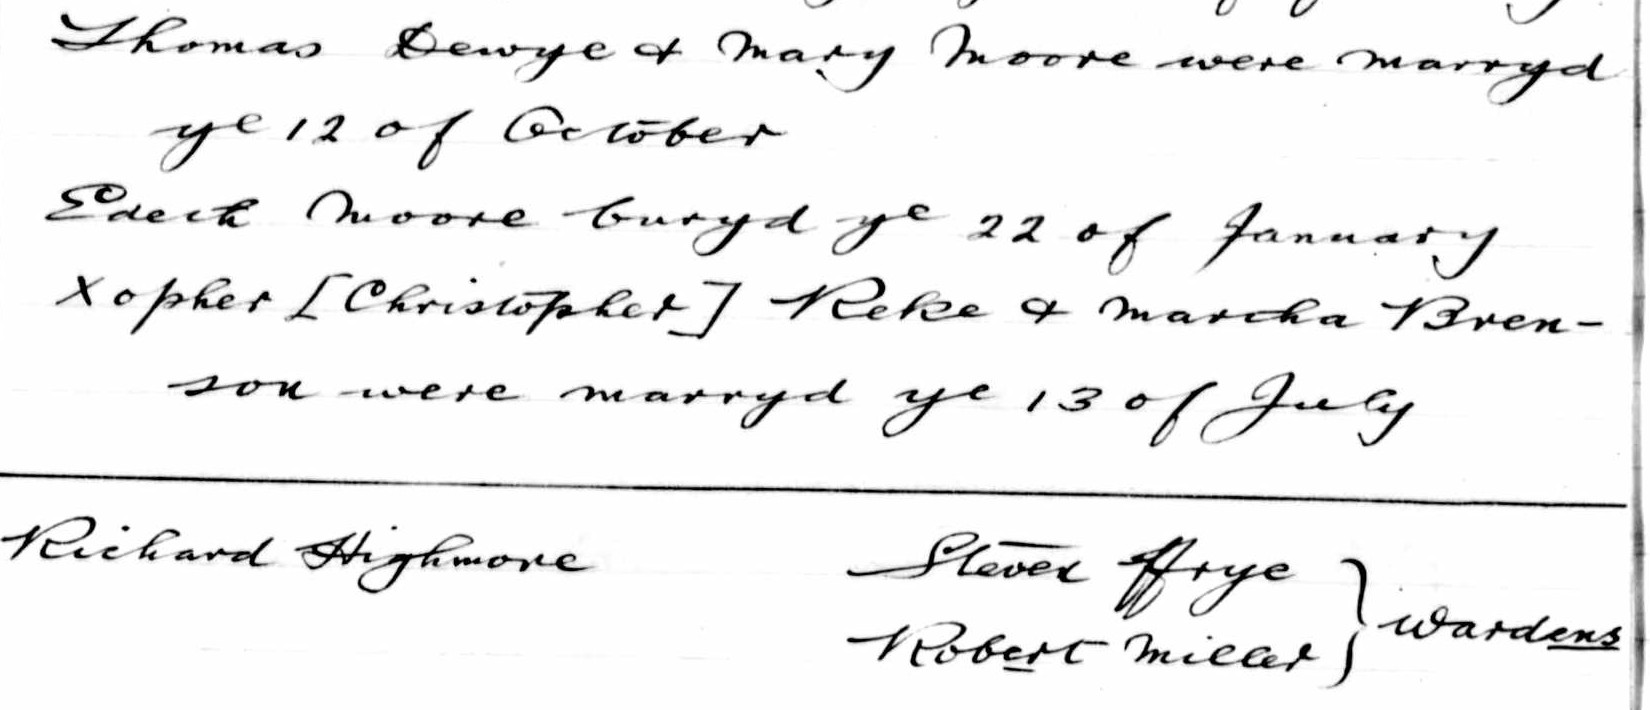 Thomas Dewye & Mary Moore were marryd
ye 12 of October
Edeth Moore buryd ye 22 of January
Xopher [Christopher] Reke & Martha Bren-
son were marryd ye 13 of July
Richard Highmore
Steven ffrye } Wardens
Robert Miller